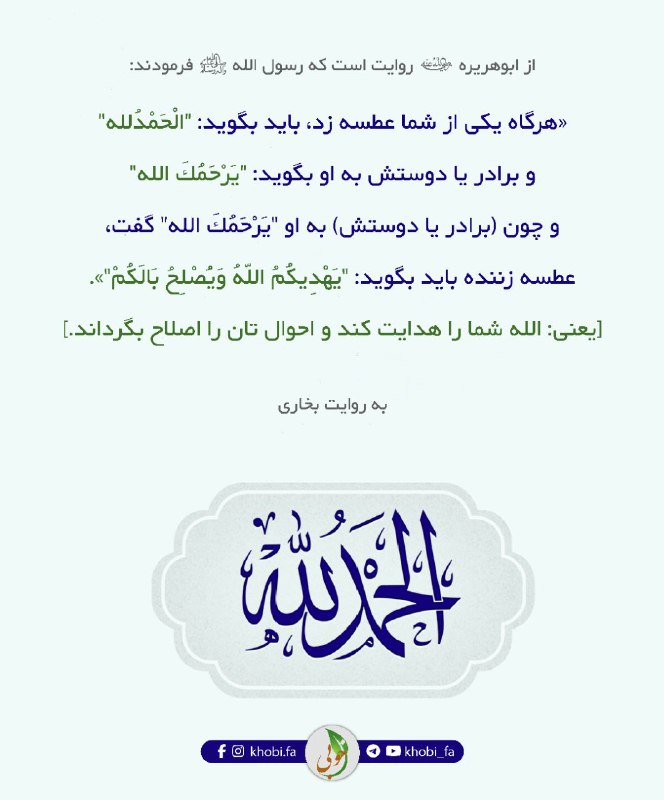 از ابوهریره رضی‌الله‌عنه روایت است که رسول الله ﷺ فرمودند:
«هرگاه یکی از شما عطسه زد، باید بگوید: "الْحَمْدُلله"
و برادر یا دوستش به او بگوید: "يَرْحَمُكَ الله"
و چون (برادر یا دوستش) به او "يَرْحَمُكَ الله" گفت،
عطسه زننده باید بگوید: "يَهْدِيكُمُ اللّهُ وَيُصْلِحُ بَالَكُمْ"».
[یعنی: الله شما را هدایت کند و احوال تان را اصلاح بگرداند.]
به روایت بخاری
الحمد لله
khobi.fa
خوبی
khobi_fa